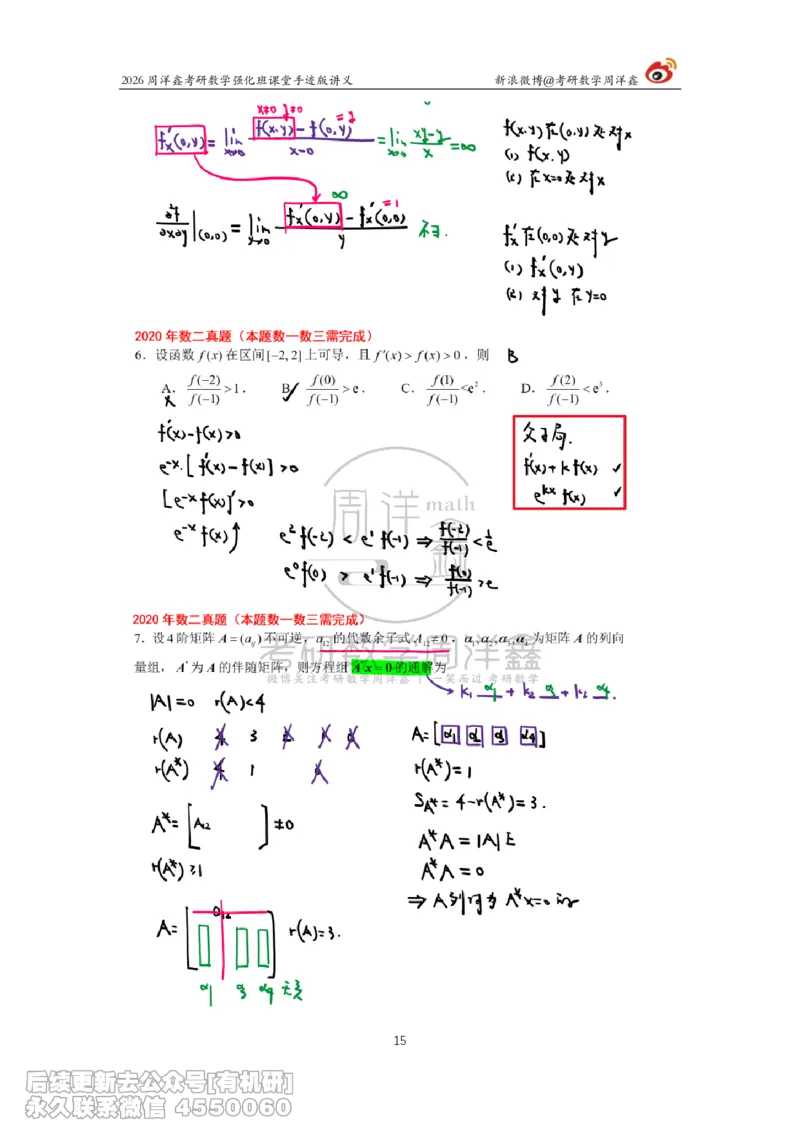 2026 周洋鑫考研数学强化班课堂手迹版讲义 新浪微博@考研数学周洋鑫
x≠0 y≠0
f'x(0,y) = lim x→0 (f(x,y) - f(0,y))/(x-0) = lim x→0 (xy-y)/x = ∞
=y
f(x,y) 在(0,y)处对x
(1) f(x,y)
(2) 在x=0处对x
∂²f/∂x∂y|(0,0) = lim y→0 (f'x(0,y) - f'x(0,0))/y 不∃.
∞ =1
f'x 在(0,0)处对y
(1) f'x(0,y)
(2) 对y 在y=0
2020 年数二真题（本题数一数三需完成）
6．设函数 f(x) 在区间[−2, 2]上可导，且 f'(x) > f(x) > 0，则 B
A． f(−2)/f(−1) > 1． B． f(0)/f(−1) > e． C． f(1)/f(−1) < e²． D． f(2)/f(−1) < e³．
f'(x)-f(x)>0
e^-x·[f'(x)-f(x)]>0
[e^-x f(x)]'>0
e^-x f(x)↑
e² f(-2) < e¹ f(-1) ⇒ f(-2)/f(-1) < 1/e
e⁰ f(0) > e¹ f(-1) ⇒ f(0)/f(-1) > e
f'(x)+k f(x) ✓
e^kx f(x) ✓
周洋 math
鑫
2020 年数二真题（本题数一数三需完成）
7．设 4 阶矩阵 A = (a_ij) 不可逆，a₁₂ 的代数余子式 A₁₂ ≠ 0，α₁,α₂,α₃,α₄ 为矩阵 A 的列向
量组，A* 为 A 的伴随矩阵，则方程组 A*x = 0 的通解为
考研数学周洋鑫
微博关注考研数学周洋鑫 | 一笑而过 考研数学
→ k₁ α₁ + k₂ α₃ + k₃ α₄.
|A|=0 r(A)<4
r(A) 4 3 2 1 0
r(A*) 4 1 0
A*=[A₁₂ ]≠0
r(A*)≥1
A=[a₁₂ ] r(A)=3.
α₁ α₃ α₄ 无关
A=[α₁ α₂ α₃ α₄]
r(A*)=1
S_A*=4-r(A*)=3.
A*A=|A|E
A*A=0
⇒ A列向为 A*x=0 的
15
后续更新去公众号[有机研]
永久联系微信 4550060